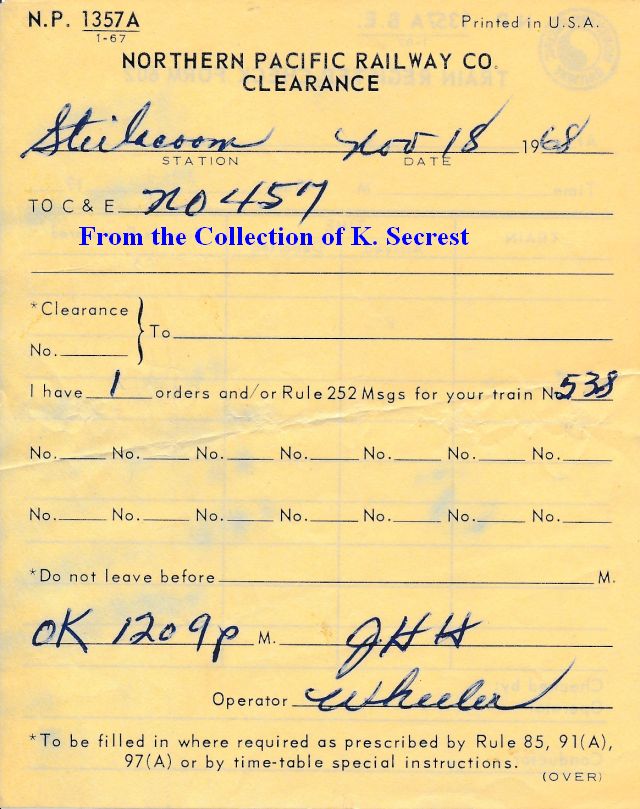 N.P. 1357A Printed in U.S.A.
1-67
NORTHERN PACIFIC RAILWAY CO.
CLEARANCE
Steilacoom Nov 18 1968
STATION DATE
TO C & E no 457
From the Collection of K. Secrest
*Clearance
To
No.
I have 1 orders and/or Rule 252 Msgs for your train No. 538
No. No. No. No. No. No. No.
No. No. No. No. No. No. No.
*Do not leave before M.
OK 1209p M. JHH
Operator Wheeler
*To be filled in where required as prescribed by Rule 85, 91(A),
97(A) or by time-table special instructions.
(OVER)